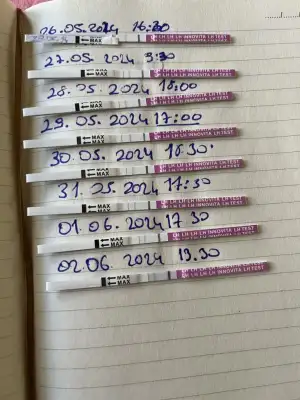 26.05.2024 16:30
MAX LH LH LH INNOVITA LH TEST
27.05.2024 9:30
MAX
MAX LH LH LH INNOVITA LH TEST
28.05.2024 18:00
MAX
MAX LH LH LH INNOVITA LH TEST
29.05.2024 17:00
MAX
MAX LH LH LH INNOVITA LH TEST
30.05.2024 18.30
MAX
MAX LH LH LH INNOVITA LH TEST
31.05.2024 17:30
MAX
MAX LH LH LH INNOVITA LH TEST
01.06.2024 17 30
MAX
MAX LH LH LH INNOVITA LH TEST
02.06.2024 19.30
MAX
MAX LH LH LH INNOVITA LH TEST